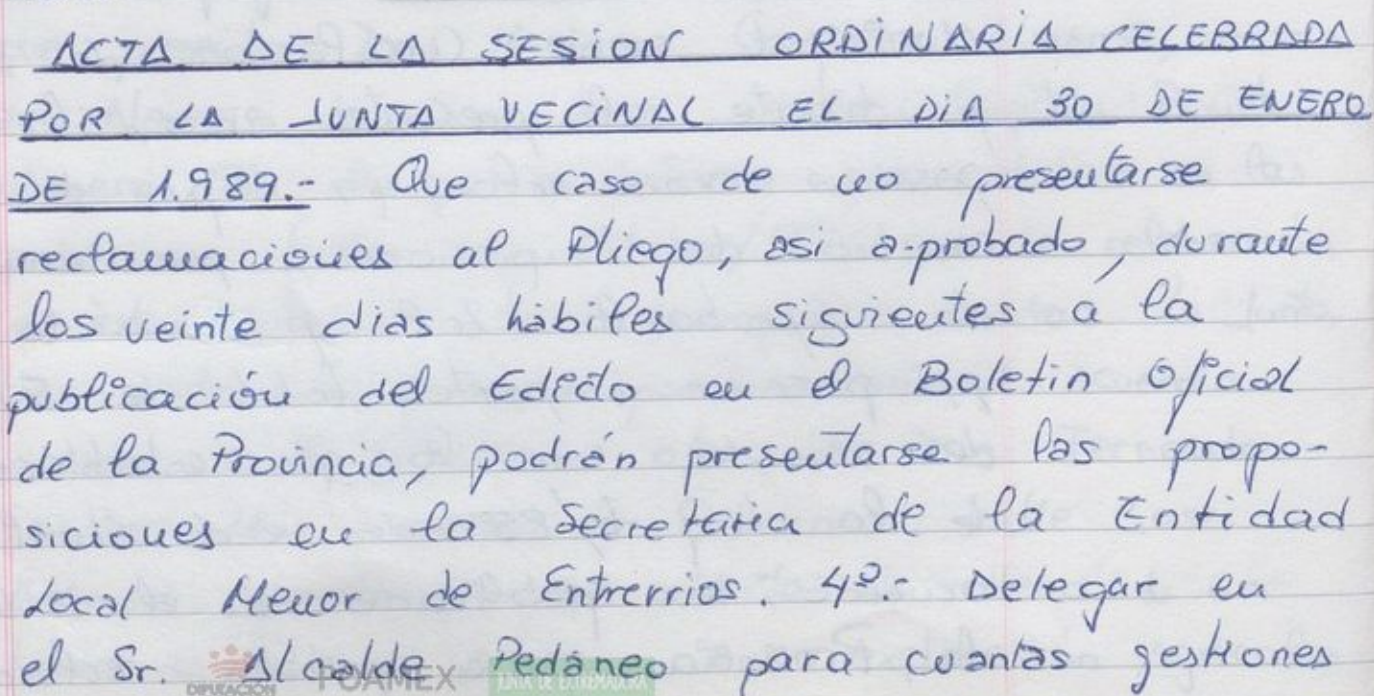 ACTA DE LA SESION ORDINARIA CELEBRADA
POR LA JUNTA VECINAL EL DIA 30 DE ENERO
DE 1.989.- Que caso de no presentarse
reclamaciones al Pliego, asi a-probado, durante
los veinte dias hábiles siguientes a la
publicación del Edicto en el Boletin Oficial
de la Provincia, podrán presentarse las propo-
siciones en la Secretaria de la Entidad
Local Menor de Entrerrios. 4º.- Delegar en
el Sr. Alcalde Pedáneo para cuantas gestiones
DIPUTACIÓN FOAMEX JUNTA DE EXTREMADURA